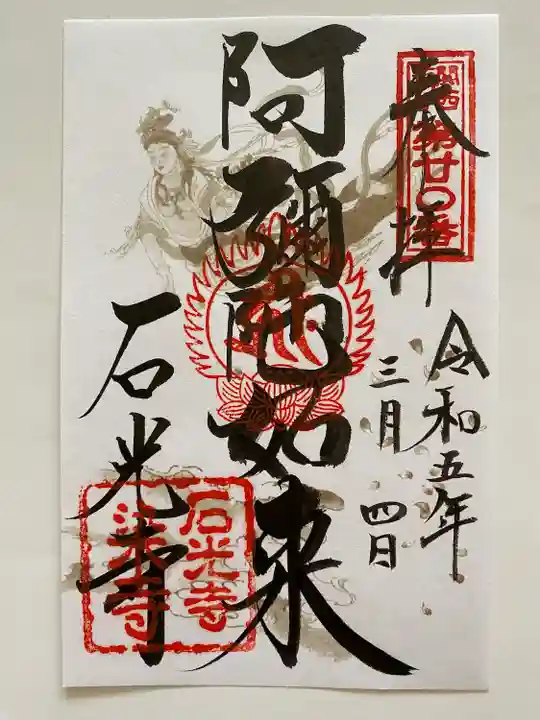 奉拝
令和五年
三月四日
阿彌陀如来
石光寺
関西
第廿〇番
石光寺